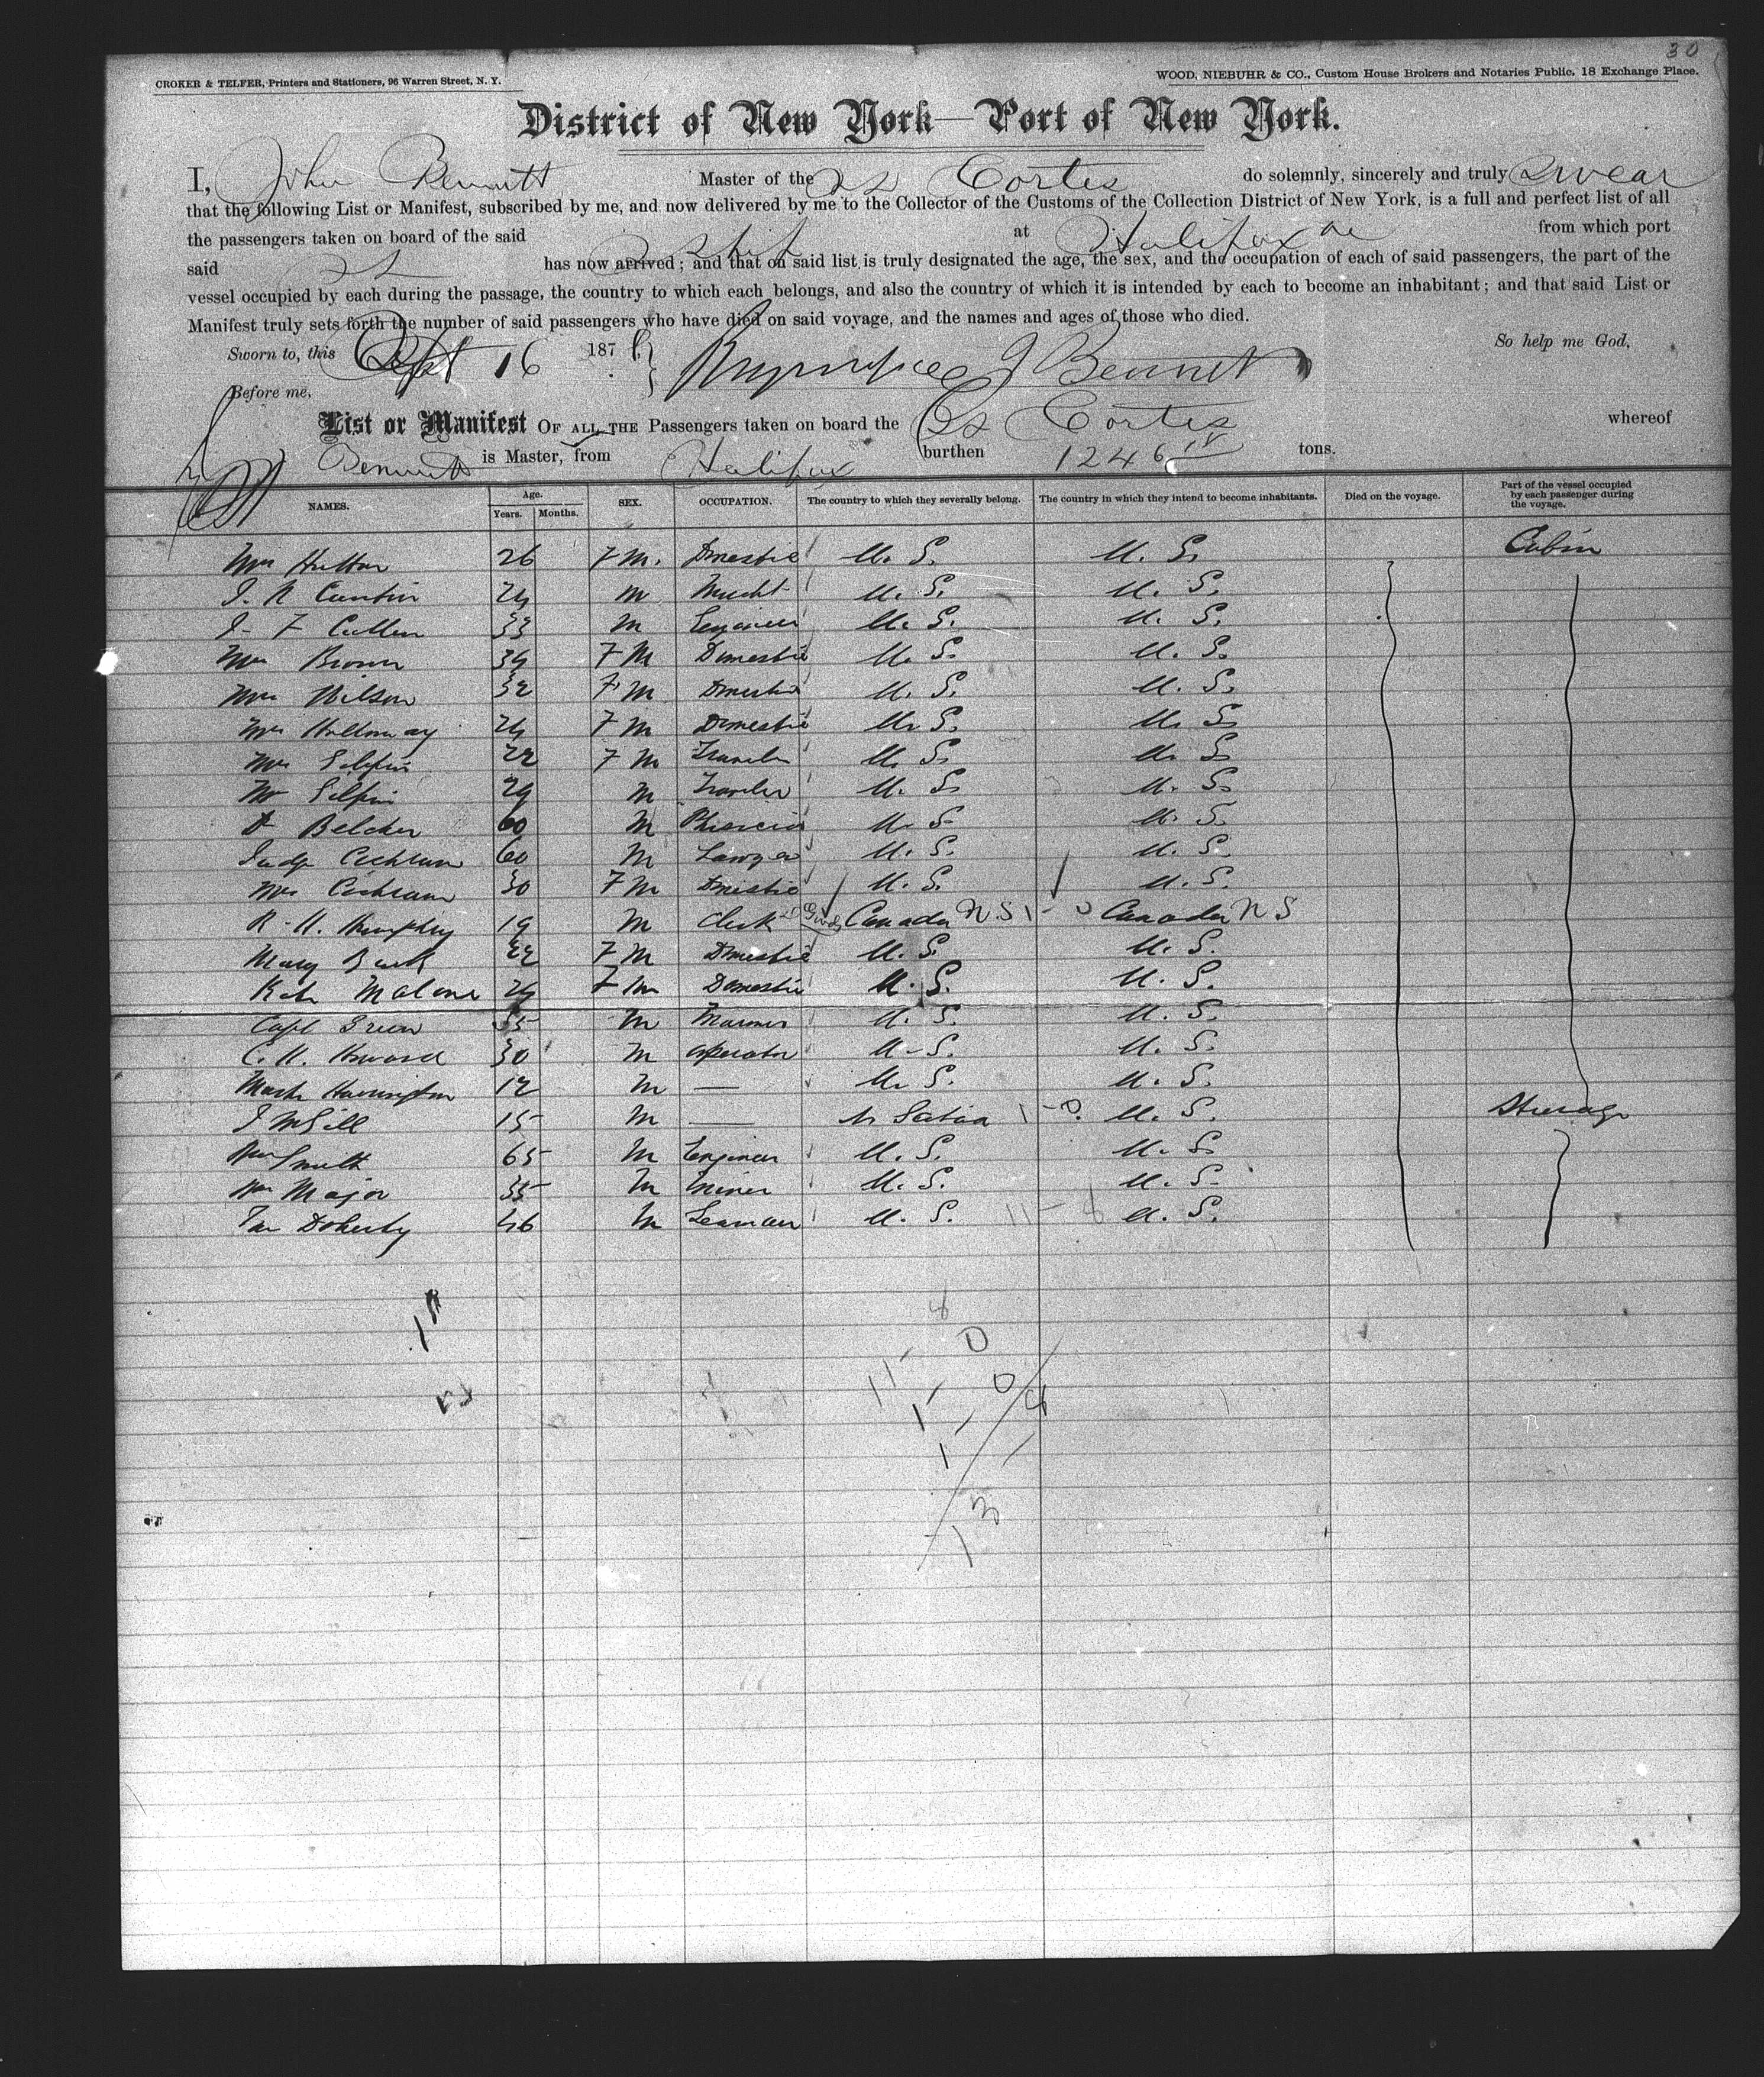 30
CROKER & TELFER, Printers and Stationers, 96 Warren Street, N. Y.
WOOD, NIEBUHR & CO., Custom House Brokers and Notaries Public, 18 Exchange Place.
District of New York—Port of New York.
I, John Bennett Master of the SS Cortes do solemnly, sincerely and truly swear
that the following List or Manifest, subscribed by me, and now delivered by me to the Collector of the Customs of the Collection District of New York, is a full and perfect list of all
the passengers taken on board of the said Ship at Halifax from which port
said has now arrived; and that on said list is truly designated the age, the sex, and the occupation of each of said passengers, the part of the
vessel occupied by each during the passage, the country to which each belongs, and also the country of which it is intended by each to become an inhabitant; and that said List or
Manifest truly sets forth the number of said passengers who have died on said voyage, and the names and ages of those who died.
Sworn to, this Sept 16 187 So help me God,
J Bennett
Before me,
List or Manifest OF ALL THE Passengers taken on board the SS Cortes whereof
Bennett is Master, from Halifax burthen 1246 tons.
NAMES. Age. Years. Months. SEX. OCCUPATION. The country to which they severally belong. The country in which they intend to become inhabitants. Died on the voyage. Part of the vessel occupied by each passenger during the voyage.
Mrs Hutton 26 F M. Domestic U. S. U. S. Cabin
24 M Mercht U. S. U. S.
J. F Cullen 33 M Engineer U. S. U. S.
Mrs Brown 34 F M Domestic U. S. U. S.
Mrs Wilson 32 F M Domestic U. S. U. S.
Mrs Holloway 24 F M Domestic U. S. U. S.
Mrs Gilpin 22 F M Traveler U. S. U. S.
Mr Gilpin 29 M Traveler U. S. U. S.
Dr Belcher 60 M U. S. U. S.
Judge Cochran 60 M Lawyer U. S. U. S.
Mrs Cochran 30 F M Domestic U. S. U. S.
R. H. Humphrey 19 M Clerk Canada N S Canada N S
Mary Burk 22 F M Domestic U. S. U. S.
Kate Malone 24 F M Domestic U. S. U. S.
Capt Green 35 M Mariner U. S. U. S.
C. H. Howard 30 M Operator U. S. U. S.
Harrington 12 M — U. S. U. S.
J McGill 15 M — N Scotia U. S. Steerage
Wm Smith 65 M Engineer U. S. U. S.
Wm Major 35 M Miner U. S. U. S.
Doherty 46 M Seaman U. S. U. S.